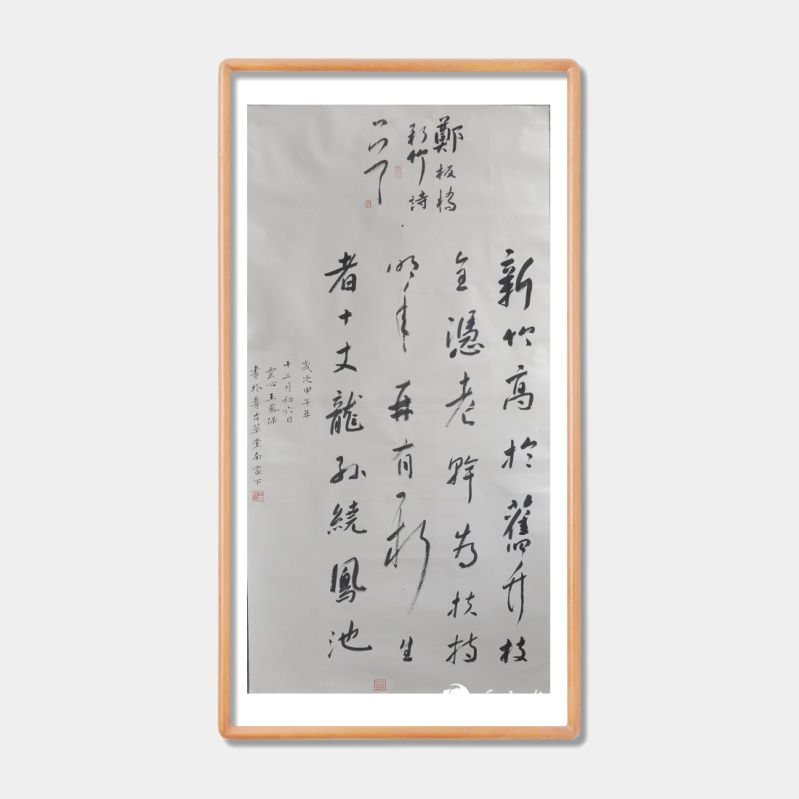 鄭板橋
新竹詩
新竹高於舊竹枝
全憑老幹為扶持
明年再有新生
者十丈龍孫繞鳳池
歲次甲午年
十二月初六日
雲心王鳳保
書於古草堂南窗下